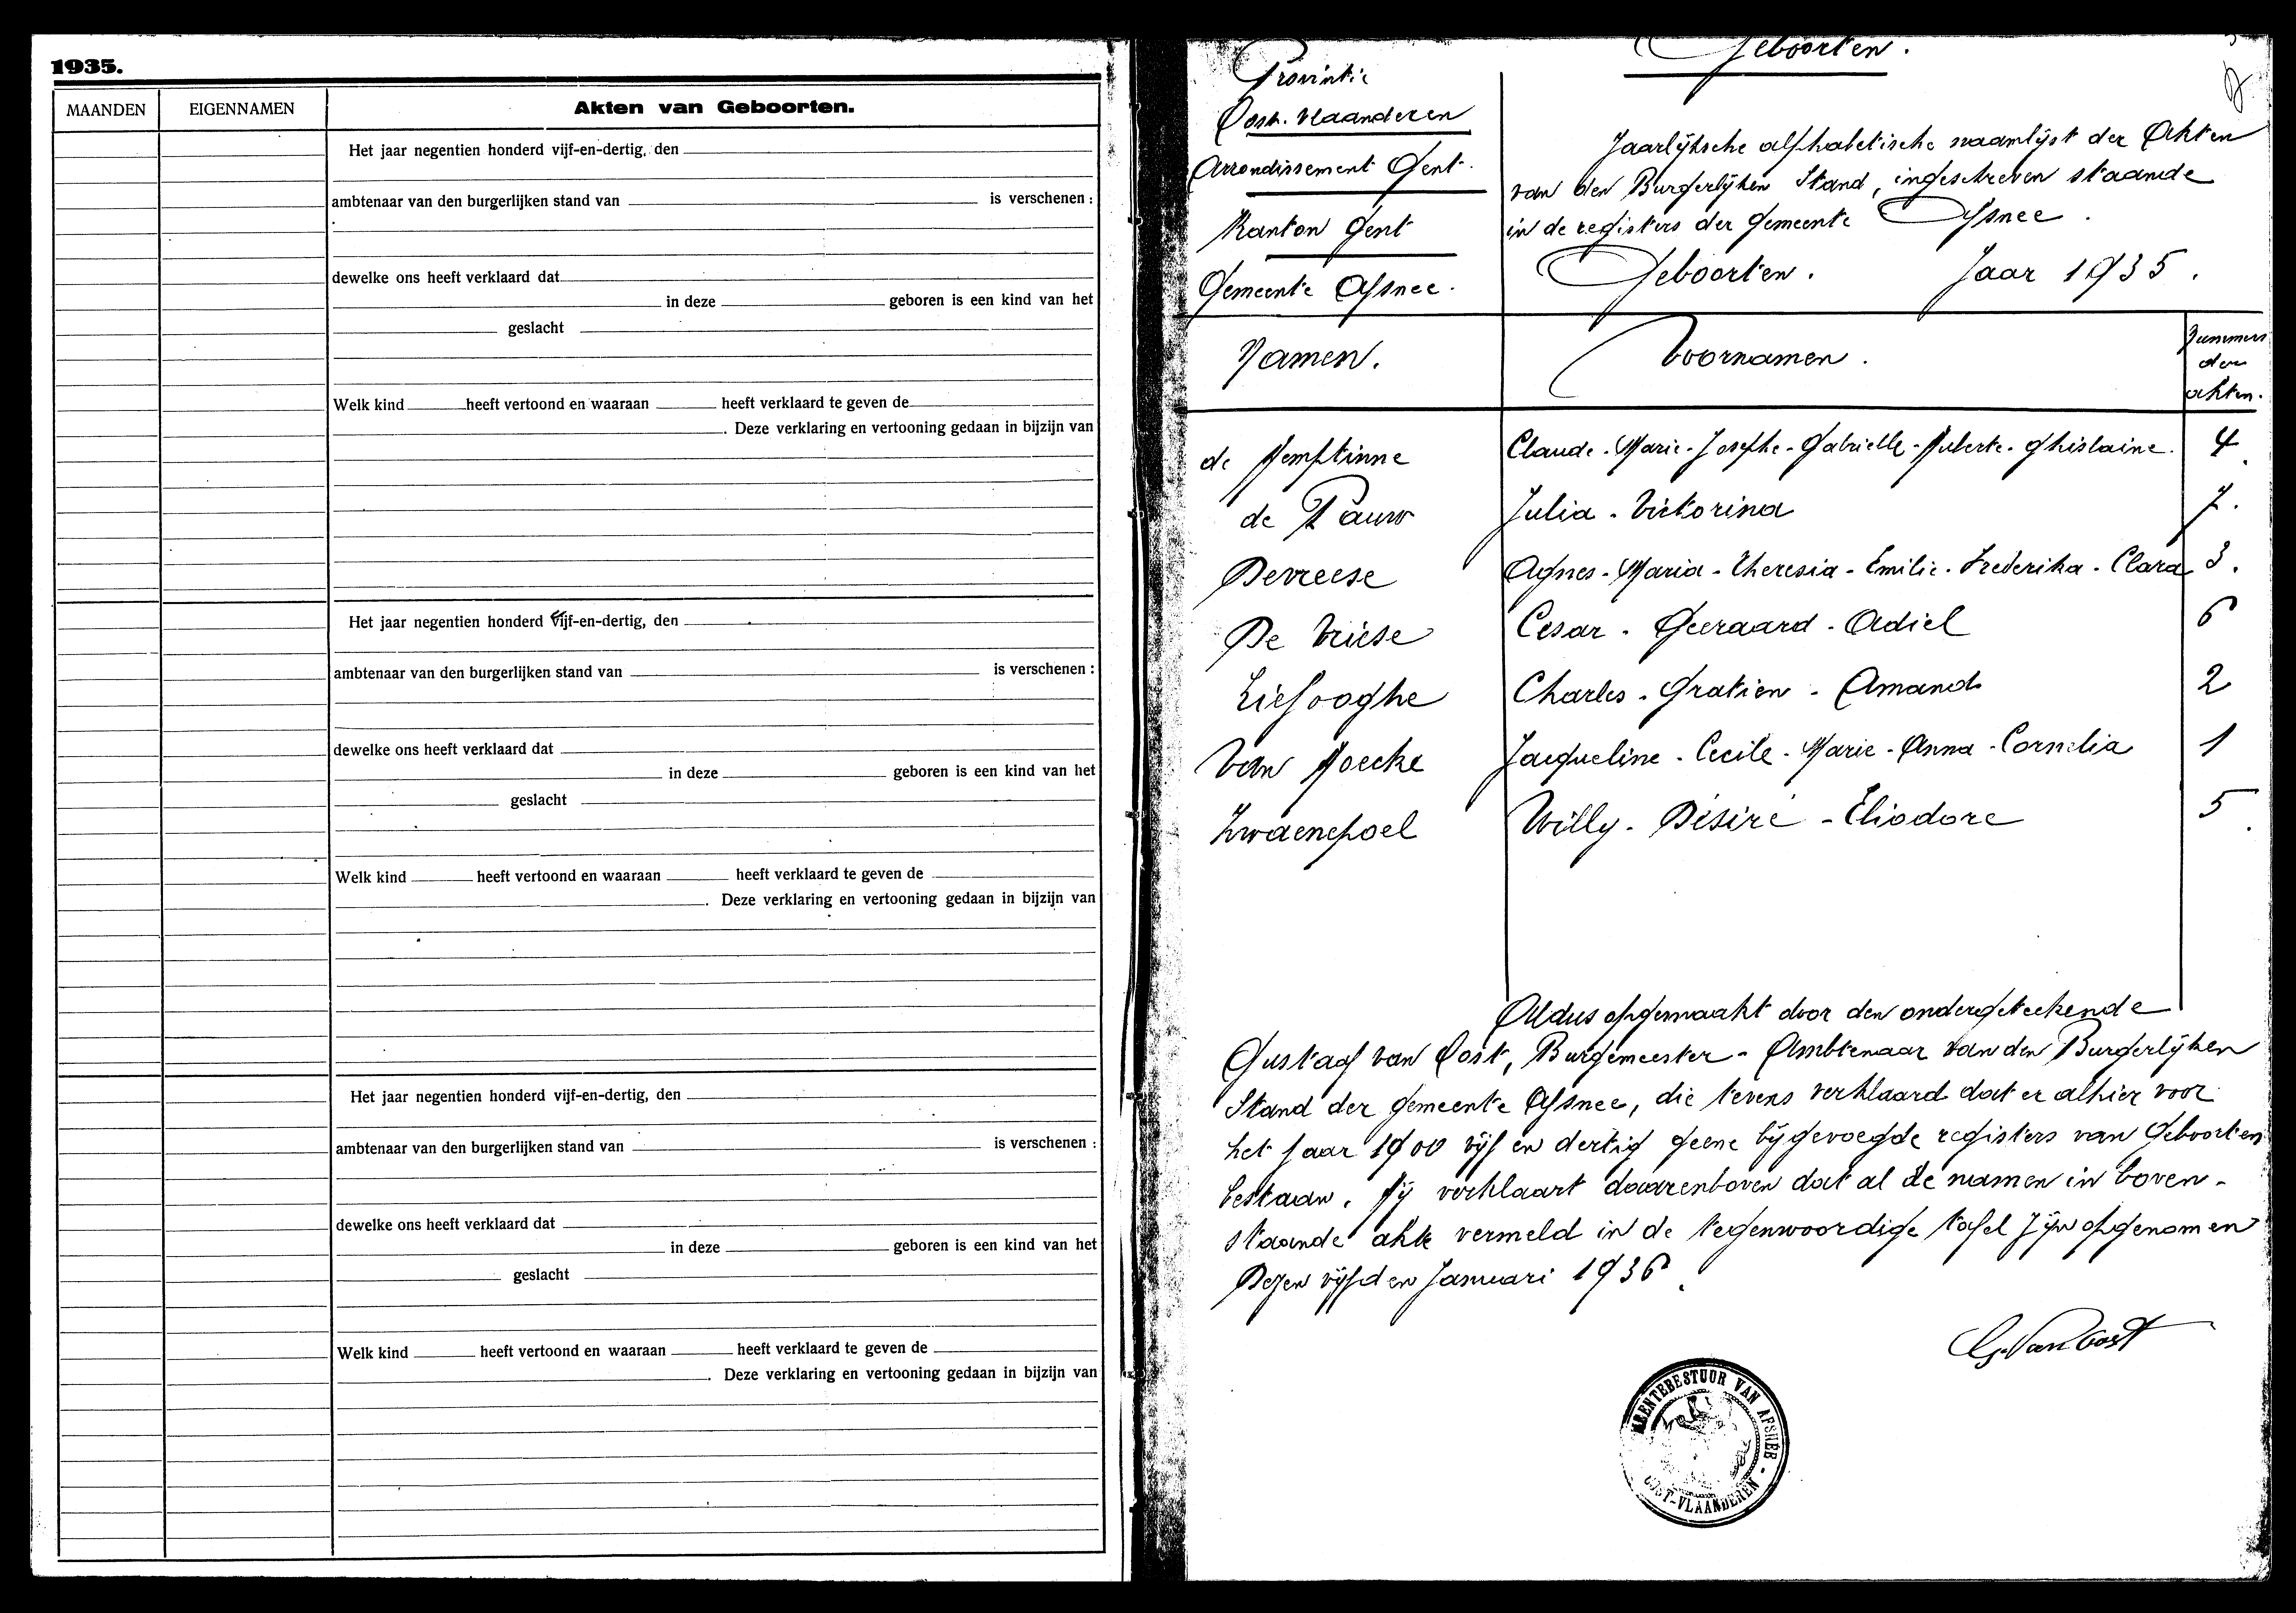 1935.
MAANDEN EIGENNAMEN Akten van Geboorten.
Het jaar negentien honderd vijf-en-dertig, den
ambtenaar van den burgerlijken stand van is verschenen :
dewelke ons heeft verklaard dat
in deze geboren is een kind van het
geslacht
Welk kind heeft vertoond en waaraan heeft verklaard te geven de
. Deze verklaring en vertooning gedaan in bijzijn van
Het jaar negentien honderd vijf-en-dertig, den
ambtenaar van den burgerlijken stand van is verschenen :
dewelke ons heeft verklaard dat
in deze geboren is een kind van het
geslacht
Welk kind heeft vertoond en waaraan heeft verklaard te geven de
. Deze verklaring en vertooning gedaan in bijzijn van
Het jaar negentien honderd vijf-en-dertig, den
ambtenaar van den burgerlijken stand van is verschenen :
dewelke ons heeft verklaard dat
in deze geboren is een kind van het
geslacht
Welk kind heeft vertoond en waaraan heeft verklaard te geven de
. Deze verklaring en vertooning gedaan in bijzijn van
Geboorten.
Provintie
Oost. Vlaanderen
Arrondissement Gent.
Kanton Gent
Gemeente Afsnee.
Jaarlijksche alphabetische naamlijst der Akten
van den Burgerlijken Stand, ingeschreven staande
in de registers der gemeente Afsnee.
Geboorten. Jaar 1935.
Namen. Voornamen. Nummers der akten.
de Hemptinne Claude-Marie-Josephe-Gabrielle-Huberte-Ghislaine. 4
de Pauw Julia-Victorina 7.
Devreese Agnes-Maria-Theresia-Emilie-Frederika-Clara 3.
De Vriese Cesar-Geeraard-Adiel 6
Liefooghe Charles-Gratien-Amand 2
Van Hoecke Jacqueline-Cecile-Marie-Anna-Cornelia 1
Zwaenepoel Willy-Désiré-Eliodore 5
Aldus opgemaakt door den ondergeteekende
Gustaaf Van Oost, Burgemeester-Ambtenaar van den Burgerlijken
Stand der gemeente Afsnee, die tevens verklaard dat er alhier voor
het jaar 1900 vijf en dertig geene bijgevoegde registers van Geboorten
bestaan. Hij verklaart daarenboven dat al de namen in boven-
staande akte vermeld in de tegenwoordige tafel zijn opgenomen
Dezen vijfden Januari 1936.
G. Van Oost
MEENTEBESTUUR VAN AFSNEE - OOST-VLAANDEREN